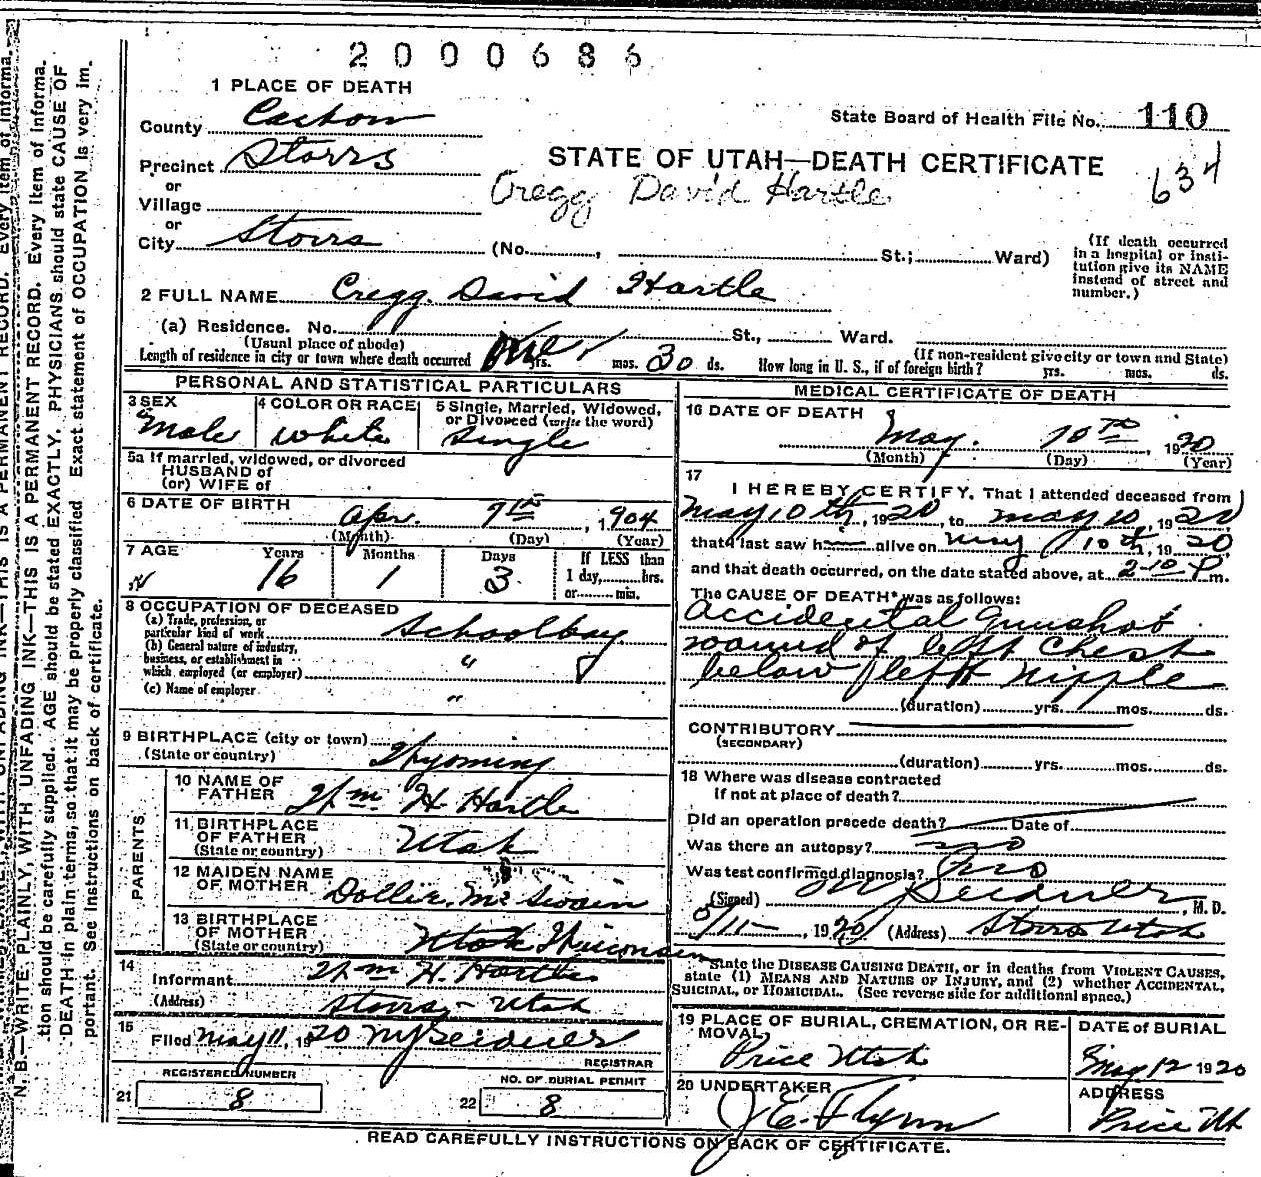 2000686
1 PLACE OF DEATH
County Carbon
State Board of Health File No. 110
Precinct Storrs
STATE OF UTAH—DEATH CERTIFICATE
634
or
Village
Cregg David Hartle
or
City Storrs (No. , St.; Ward)
(If death occurred
in a hospital or insti-
tution give its NAME
instead of street and
number.)
2 FULL NAME Cregg David Hartle
(a) Residence. No. St., Ward.
(Usual place of abode)
(If non-resident give city or town and State)
Length of residence in city or town where death occurred yrs. mos. 30 ds. How long in U. S., if of foreign birth? yrs. mos. ds.
PERSONAL AND STATISTICAL PARTICULARS
3 SEX
Male
4 COLOR OR RACE
White
5 Single, Married, Widowed,
or Divorced (write the word)
Single
5a If married, widowed, or divorced
HUSBAND of
(or) WIFE of
6 DATE OF BIRTH
Apr. 7th, 1904
(Month) (Day) (Year)
7 AGE Years Months Days
16 1 3
If LESS than
1 day, hrs.
or min.
8 OCCUPATION OF DECEASED
(a) Trade, profession, or
particular kind of work Schoolboy
(b) General nature of industry,
business, or establishment in
which employed (or employer) "
(c) Name of employer "
9 BIRTHPLACE (city or town)
(State or country) Wyoming
PARENTS
10 NAME OF
FATHER Wm H. Hartle
11 BIRTHPLACE
OF FATHER
(State or country) Utah
12 MAIDEN NAME
OF MOTHER Dollie McSwain
13 BIRTHPLACE
OF MOTHER
(State or country) Utah Wisconsin
14
Informant Wm H. Hartle
(Address) Storrs - Utah
15
Filed May 11, 1920 Seidner
REGISTRAR
REGISTERED NUMBER
21 8
NO. OF BURIAL PERMIT
22 8
MEDICAL CERTIFICATE OF DEATH
16 DATE OF DEATH
May. 10th, 1920
(Month) (Day) (Year)
17
I HEREBY CERTIFY, That I attended deceased from
May 10th, 1920, to May 10, 1920
that I last saw h alive on May 10th, 1920
and that death occurred, on the date stated above, at 2-10 P m.
The CAUSE OF DEATH* was as follows:
Accidental Gunshot
wound of left Chest
below left nipple
(duration) yrs. mos. ds.
CONTRIBUTORY
(SECONDARY)
(duration) yrs. mos. ds.
18 Where was disease contracted
If not at place of death?
Did an operation precede death? Date of
Was there an autopsy? no
Was test confirmed diagnosis? no
(Signed) Seidner, M. D.
5/11-, 1920 (Address) Storrs Utah
State the DISEASE CAUSING DEATH, or in deaths from VIOLENT CAUSES,
state (1) MEANS AND NATURE OF INJURY, and (2) whether ACCIDENTAL,
SUICIDAL, or HOMICIDAL. (See reverse side for additional space.)
19 PLACE OF BURIAL, CREMATION, OR RE-
MOVAL
Price Utah
DATE of BURIAL
May 12 1920
20 UNDERTAKER
J E Flynn
ADDRESS
Price Ut
READ CAREFULLY INSTRUCTIONS ON BACK OF CERTIFICATE.
N. B.—WRITE PLAINLY, WITH UNFADING INK—THIS IS A PERMANENT RECORD. Every item of informa-
tion should be carefully supplied. AGE should be stated EXACTLY. PHYSICIANS should state CAUSE OF
DEATH in plain terms, so that it may be properly classified. Exact statement of OCCUPATION is very im-
portant. See instructions on back of certificate.